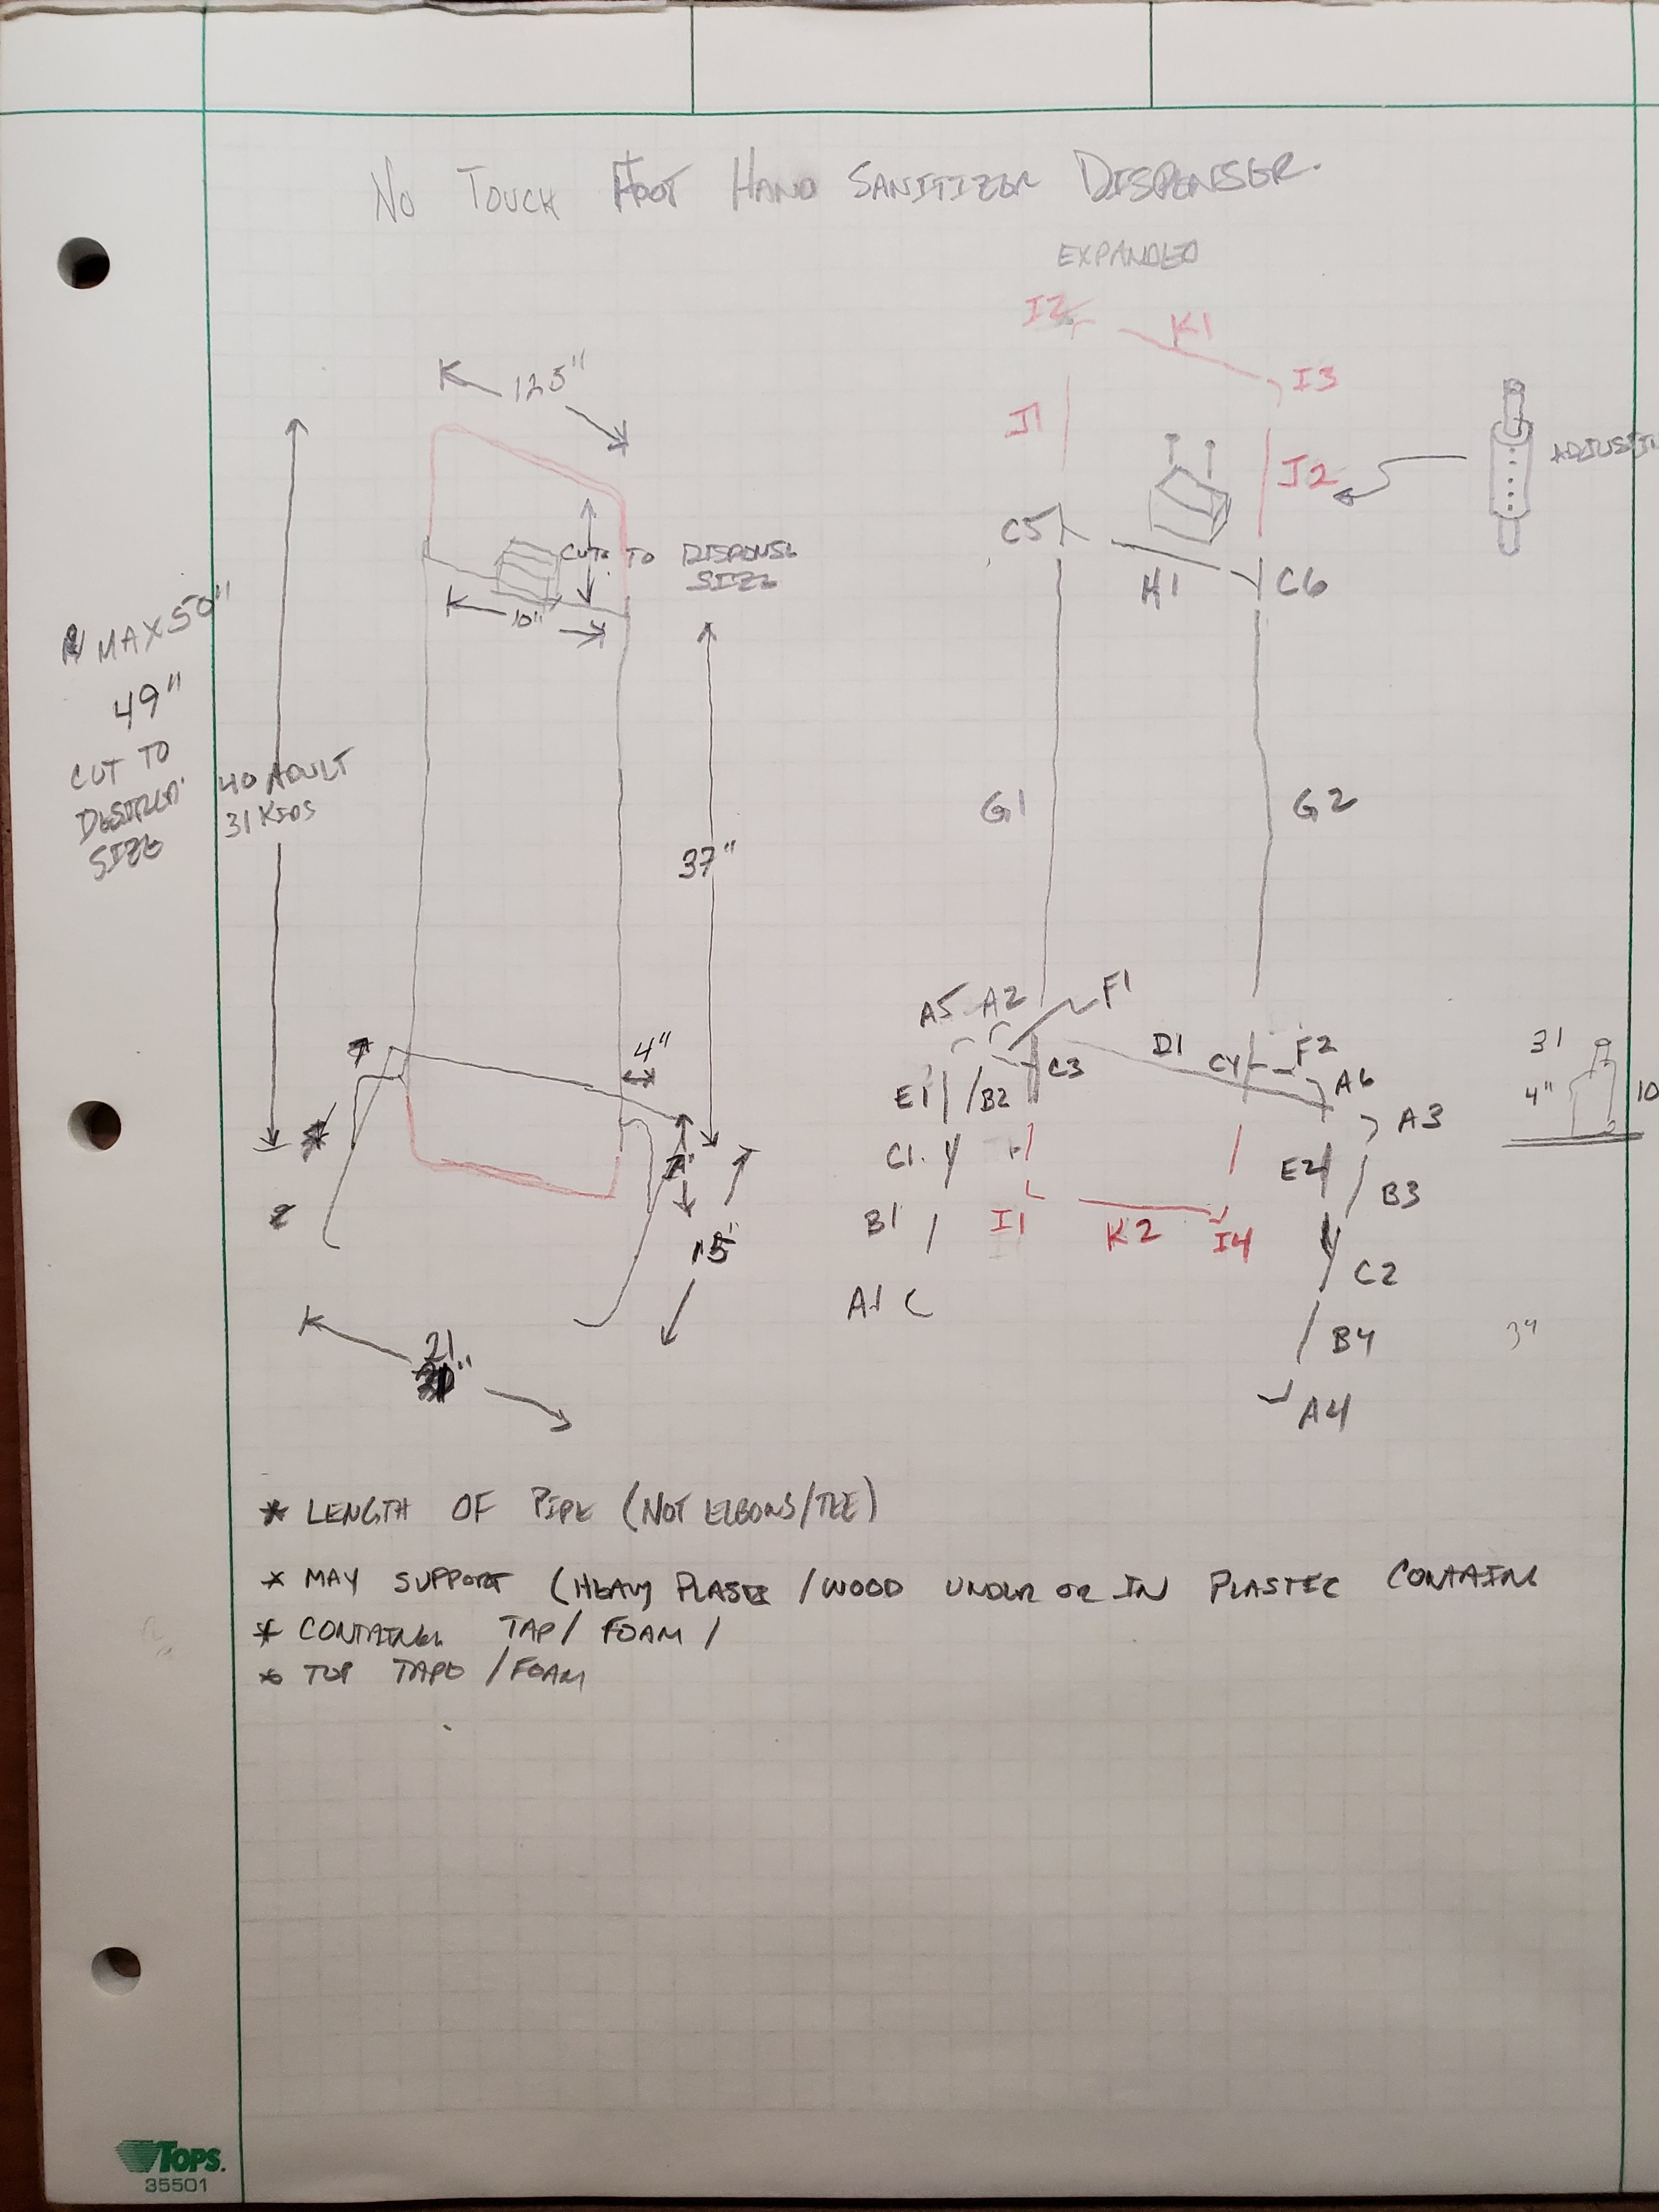 NO TOUCH FOOT HAND SANITIZER DISPENSER.
EXPANDED
I2
K1
I3
J1
J2
C5
H1
C6
G1
G2
F1
A5 A2
D1
C4
F2
A6
C3
E1
B2
A3
C1.
E2
B3
B1
I1
K2
I4
C2
A1
B4
A4
12.5"
CUT TO DISPENSE
SIZE
10"
MAX 50"
49"
CUT TO
SIZE
40 ADULT
31 KIDS
37"
4"
15"
21
31
4"
10
3"
* LENGTH OF PIPE (NOT ELBOWS/TEE)
* MAY SUPPORT (HEAVY PLASTIC /WOOD UNDER OR IN PLASTIC
* TAP/ FOAM /
* TOP TAPE /FOAM
TOPS.
35501